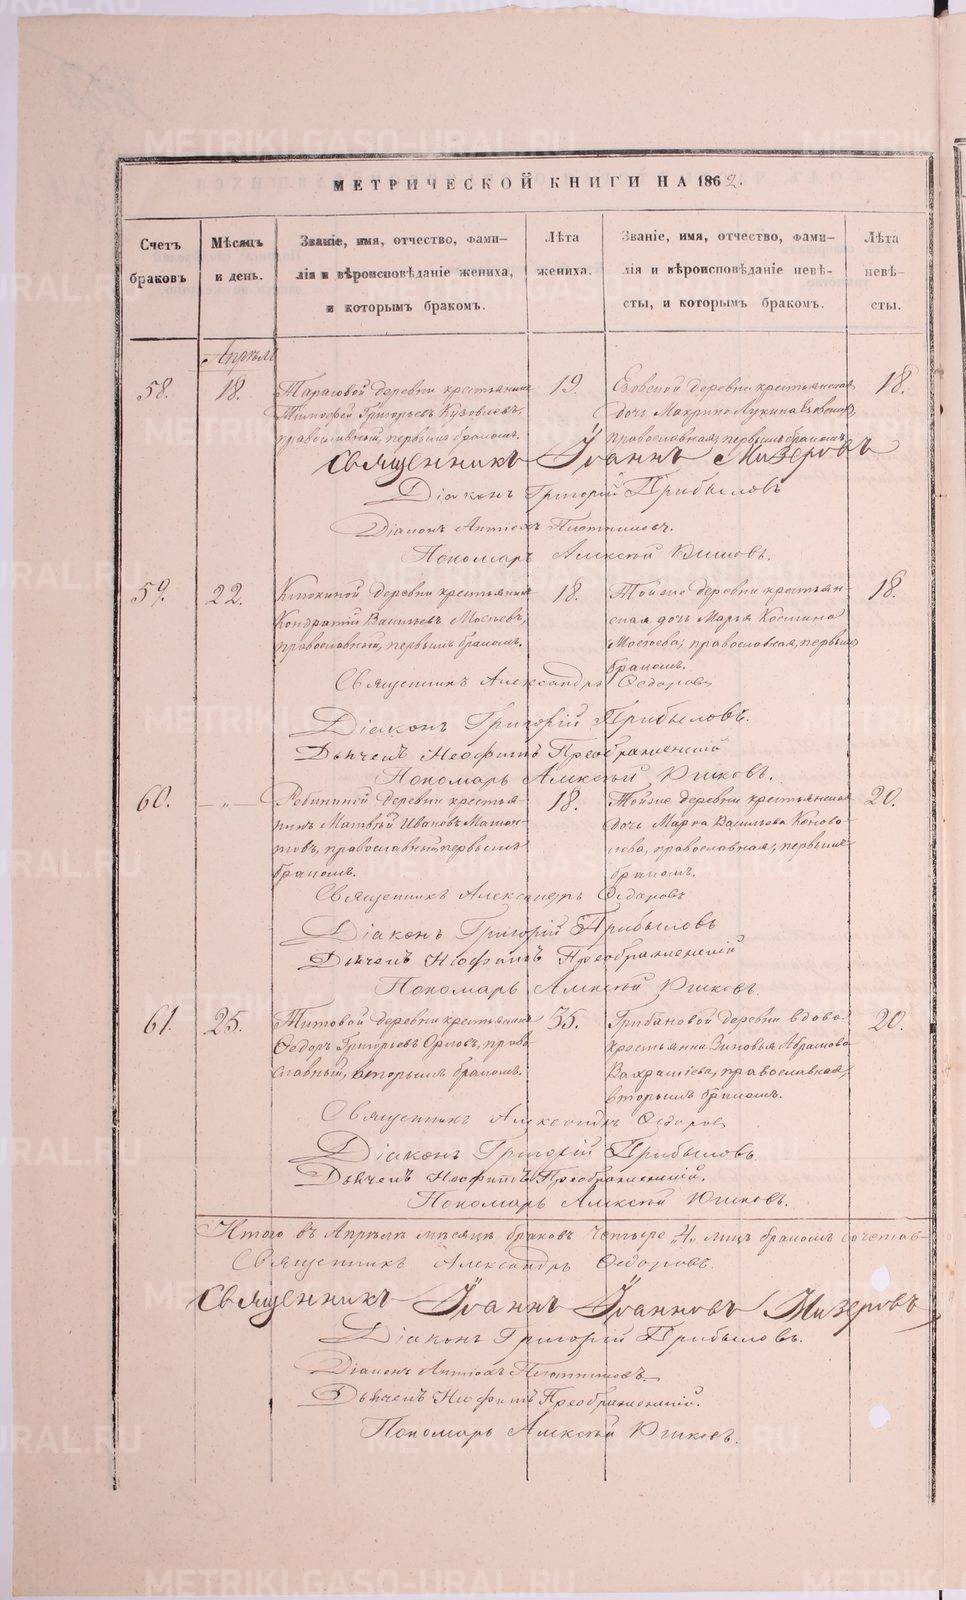 МЕТРИЧЕСКОЙ КНИГИ НА 1862.
Счетъ браковъ
Мѣсяцъ и день.
Званіе, имя, отчество, фами-
лія и вѣроисповѣданіе жениха,
и которымъ бракомъ.
Лѣта жениха.
Званіе, имя, отчество, фами-
лія и вѣроисповѣданіе невѣ-
сты, и которымъ бракомъ.
Лѣта невѣ-
сты.
Апрѣль
58. 18.
деревни крестьянинъ
Тимофей Григорьевъ
православный, первымъ бракомъ.
19.
деревни крестьянская
дочь Лукина
православная, первымъ бракомъ
18.
Священникъ Іоаннъ Мизеровъ
Діаконъ Григорій Прибыловъ
Діаконъ
Пономарь Алексѣй
59. 22.
деревни крестьянинъ
Кондратій Васильевъ
православный, первымъ бракомъ.
18.
Тойже деревни крестьян-
ская дочь Марья
православная, первымъ
бракомъ.
18.
Священникъ Александръ Ѳедоровъ
Діаконъ Григорій Прибыловъ.
Дьячекъ Неофитъ Преображенскій
Пономарь Алексѣй
60. — „ —
деревни крестья-
нинъ Матвѣй Ивановъ
православный, первымъ
бракомъ.
18.
Тойже деревни крестьянская
дочь Васильева Коново-
лова, православная, первымъ
бракомъ.
20.
Священникъ Александръ Ѳедоровъ
Діаконъ Григорій Прибыловъ
Дьячекъ Неофитъ Преображенскій
Пономарь Алексѣй
61. 25.
Титовой деревни крестьянинъ
Ѳедоръ Григорьевъ Орловъ, право-
славный, вторымъ бракомъ.
35.
Грибановой деревни вдова
Зиновья Абрамова
православная,
вторымъ бракомъ.
20.
Священникъ Александръ Ѳедоровъ
Діаконъ Григорій Прибыловъ.
Дьячекъ Неофитъ Преображенскій.
Пономарь Алексѣй
Итого въ Апрѣлѣ мѣсяцѣ браковъ четыре „4„ лицъ бракомъ сочетав-
Священникъ Александръ Ѳедоровъ.
Священникъ Іоаннъ Іоанновъ Мизеровъ
Діаконъ Григорій Прибыловъ.
Діаконъ
Дьячекъ Неофитъ Преображенскій.
Пономарь Алексѣй
METRIKI.GASO-URAL.RU